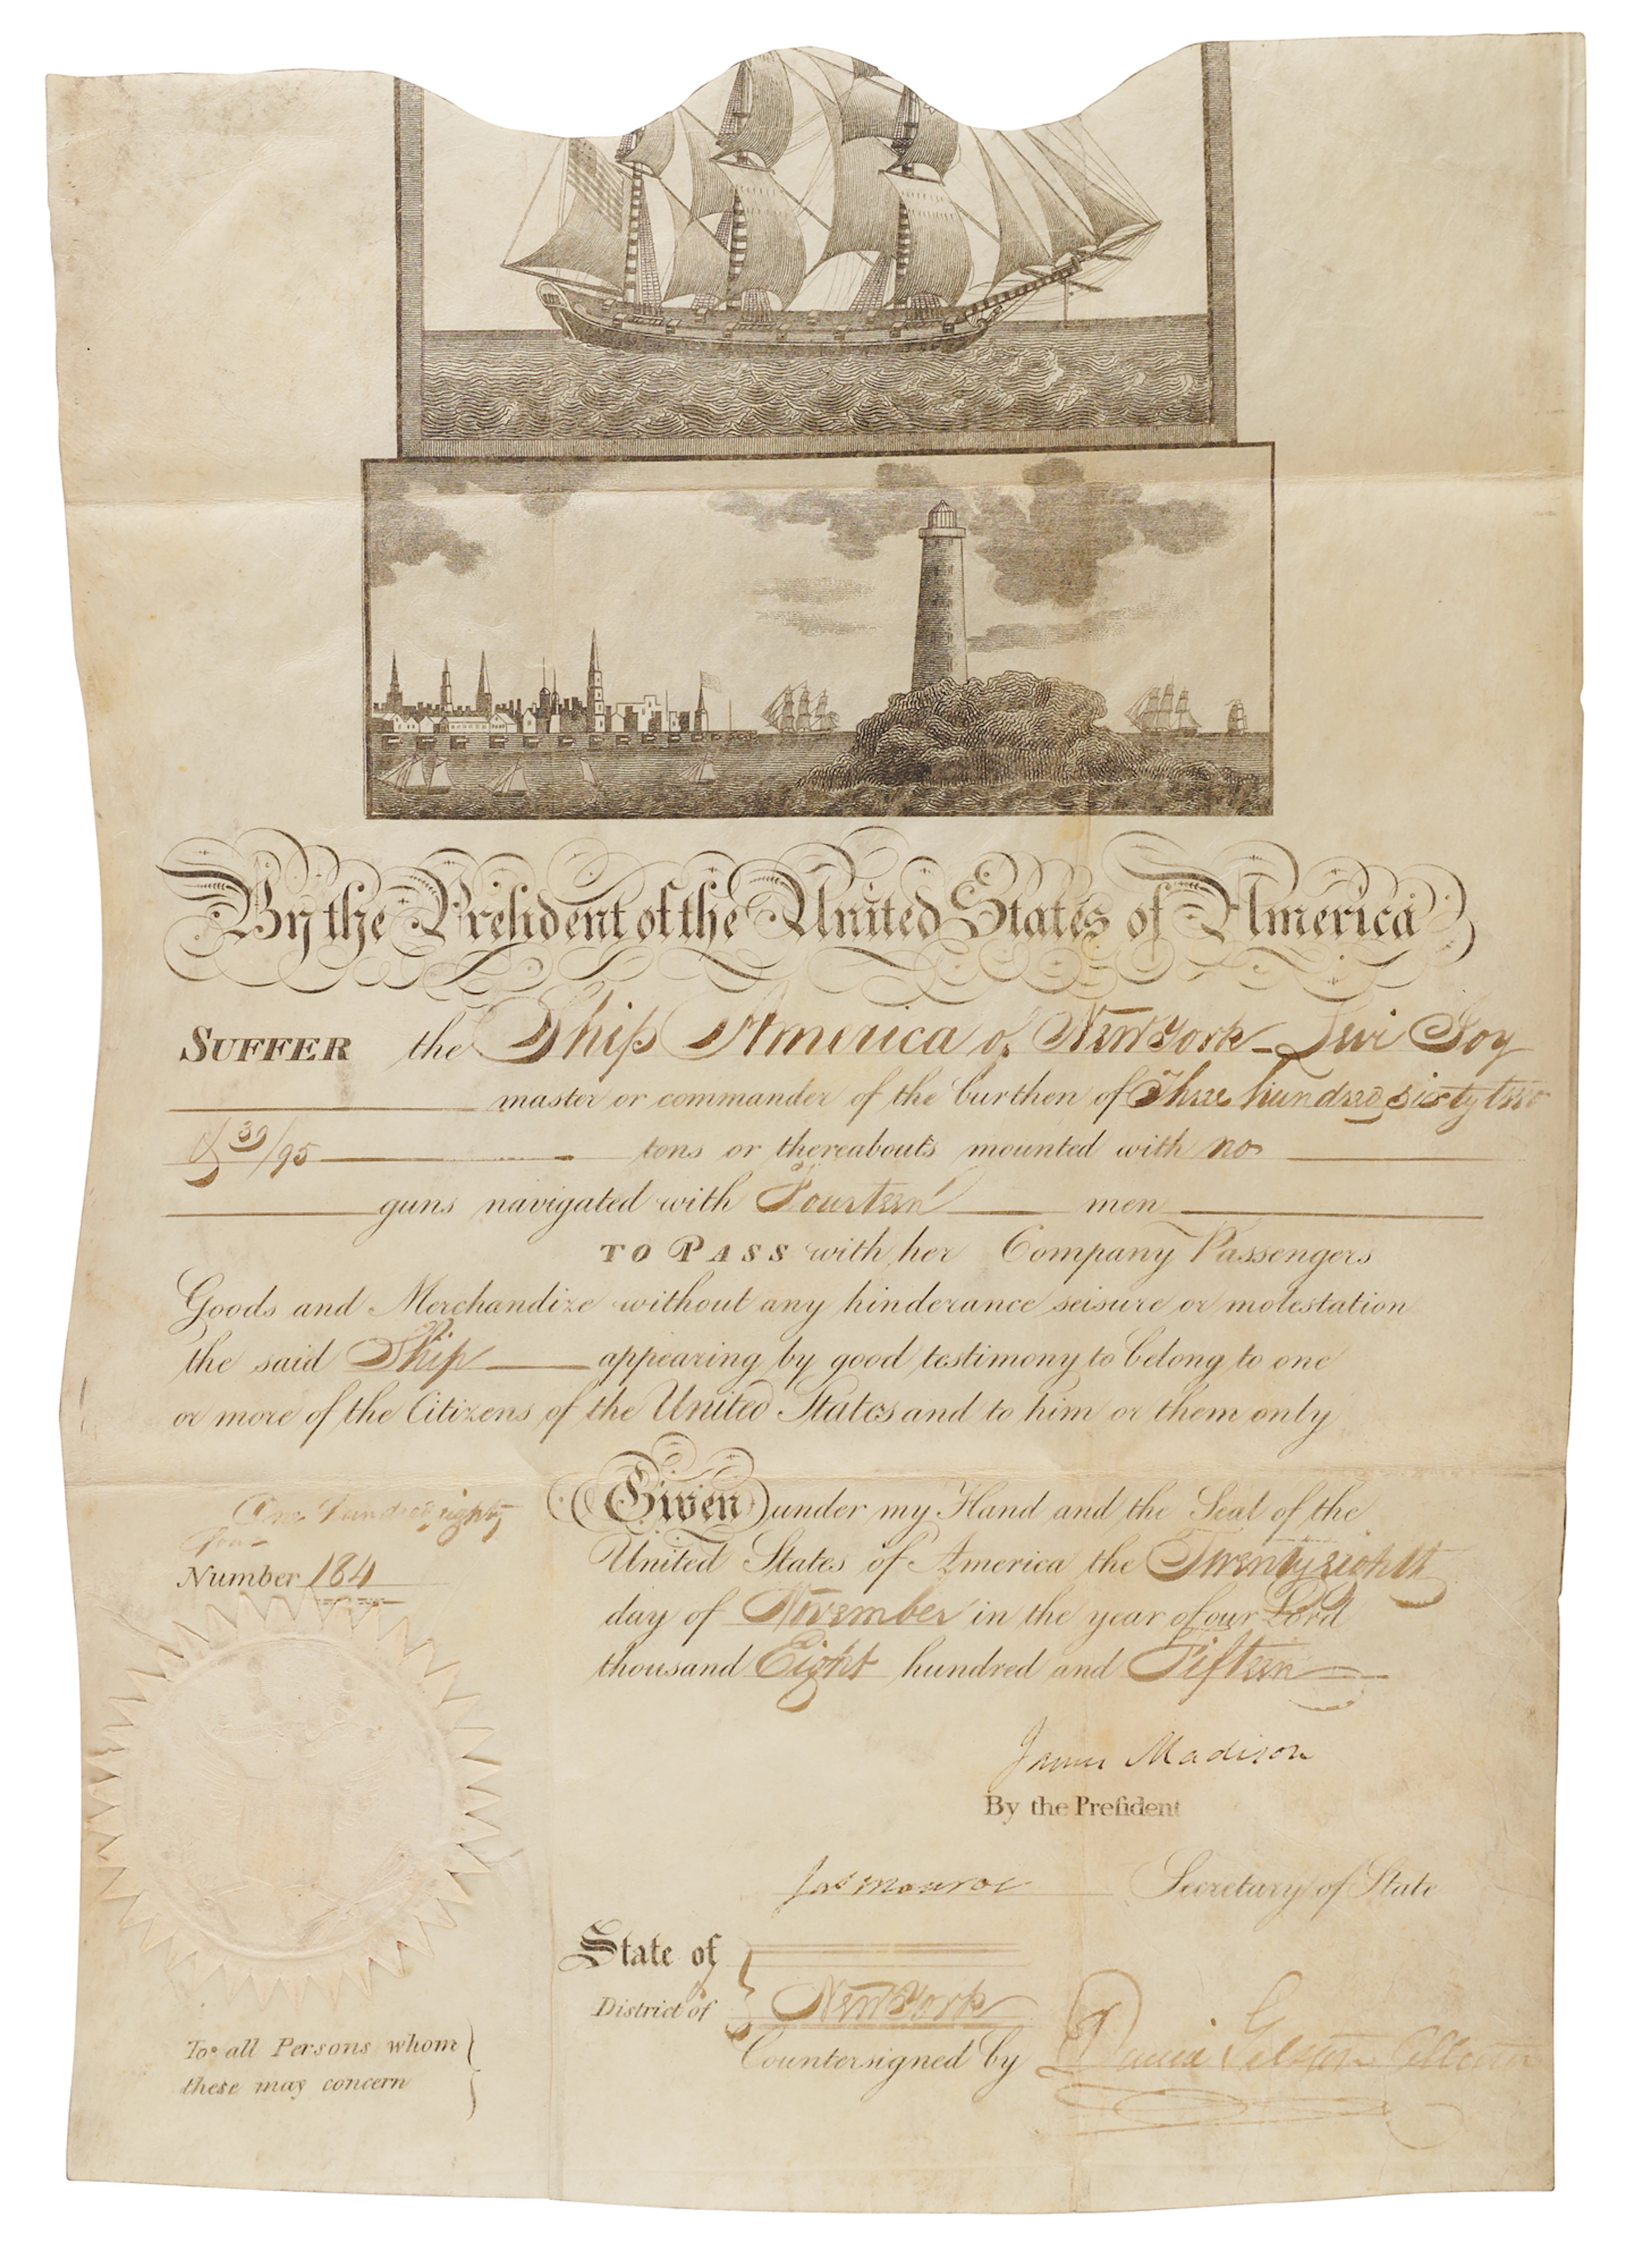 By the President of the United States of America
SUFFER the Ship America of New York Levi Joy
master or commander of the burthen of Three hundred sixty two
39/95 tons or thereabouts mounted with no
guns navigated with Fourteen men
TO PASS with her Company Passengers
Goods and Merchandize without any hinderance seisure or molestation
the said Ship appearing by good testimony to belong to one
or more of the Citizens of the United States and to him or them only
Given under my Hand and the Seal of the
United States of America the Twenty eighth
day of November in the year of our Lord
thousand Eight hundred and Fifteen
One Hundred eighty
four
Number 184
James Madison
By the Preſident
Jas Monroe Secretary of State
State of
District of New York
Countersigned by David Gelston Collector
To all Persons whom
these may concern